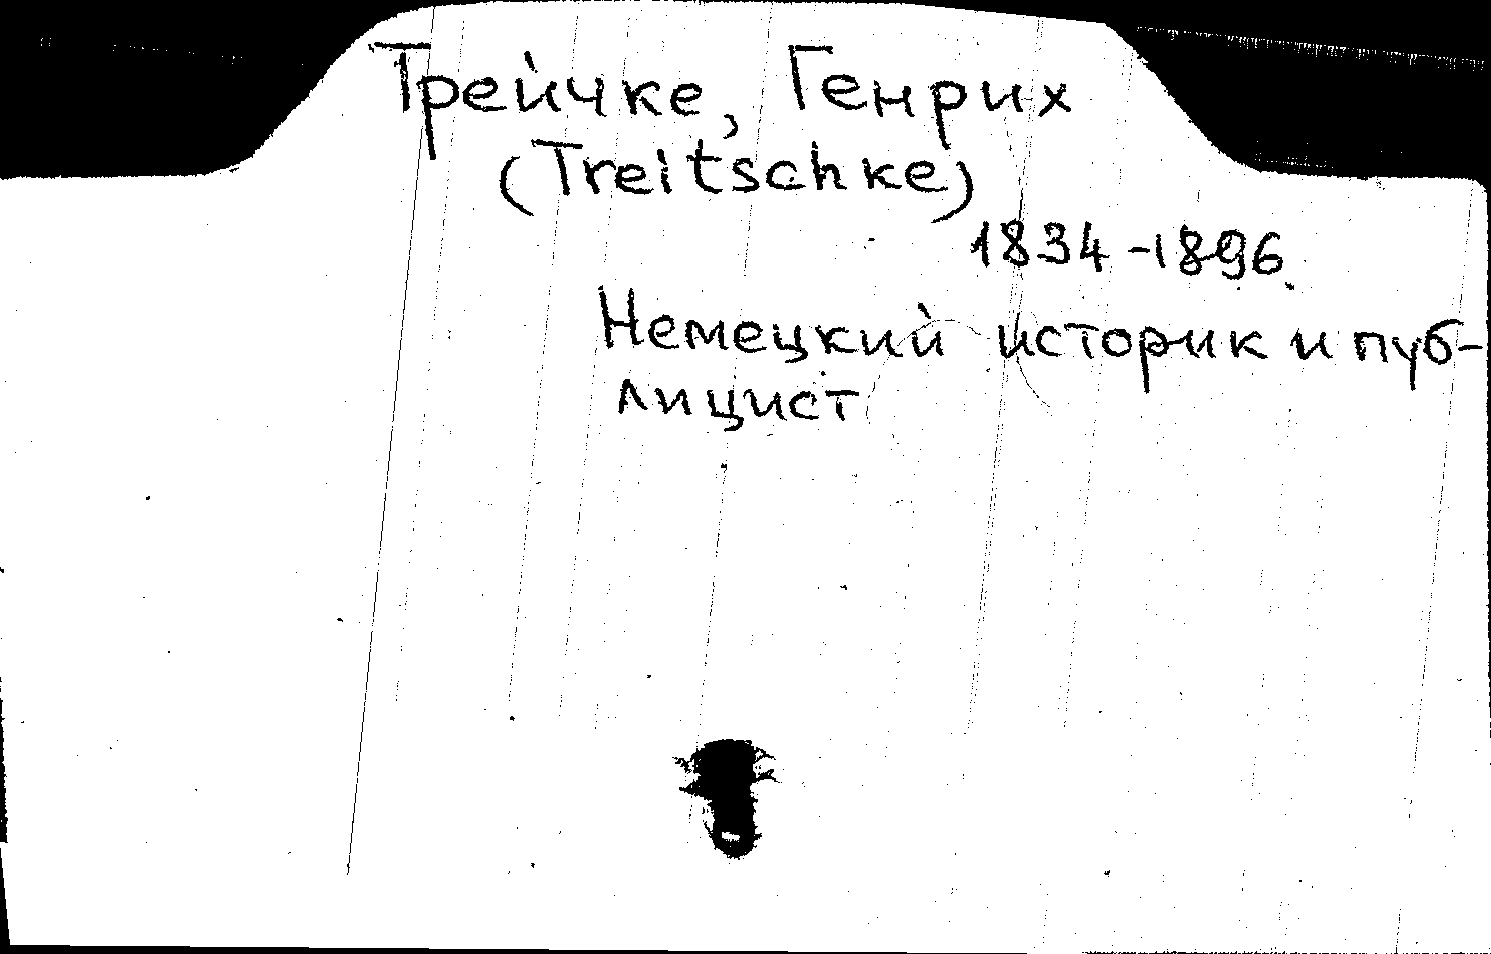 Трейчке, Генрих
(Treitschke)
1834-1896.
Немецкий историк и пуб-
лицист